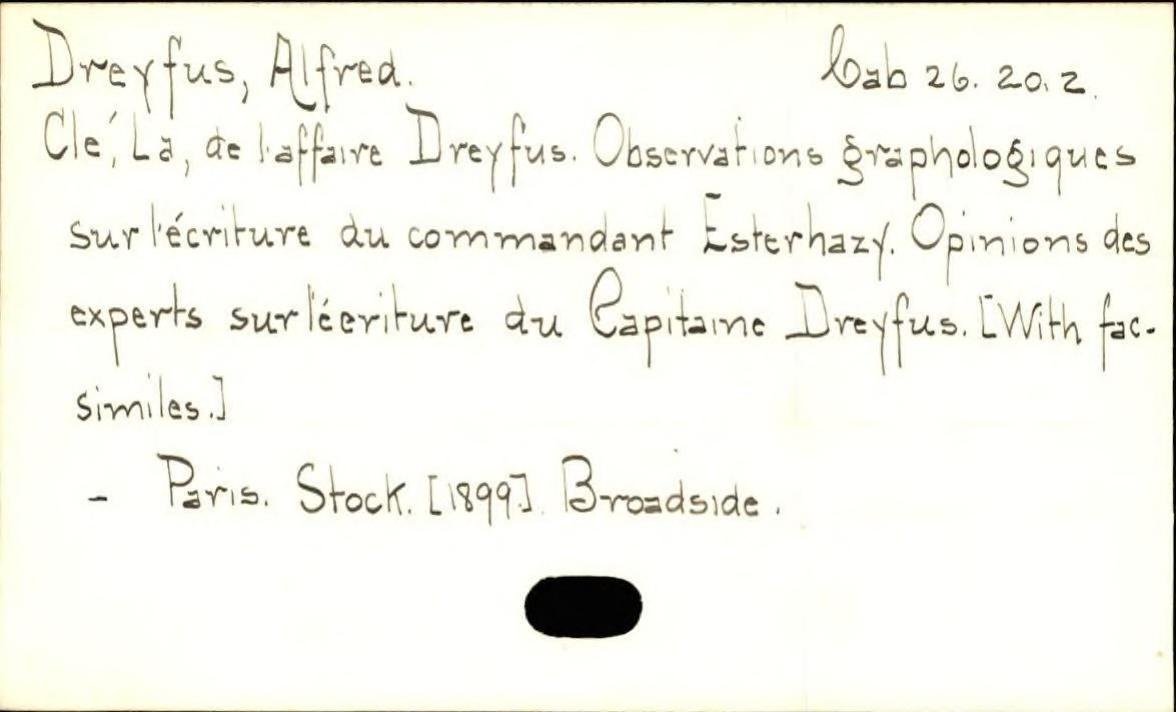 Dreyfus, Alfred. Cab 26. 20. 2.
Clé, La, de l'affaire Dreyfus. Observations graphologiques
sur l'écriture du commandant Esterhazy. Opinions des
experts sur l'écriture du Capitaine Dreyfus. [With fac-
similes.]
- Paris. Stock. [1899]. Broadside.